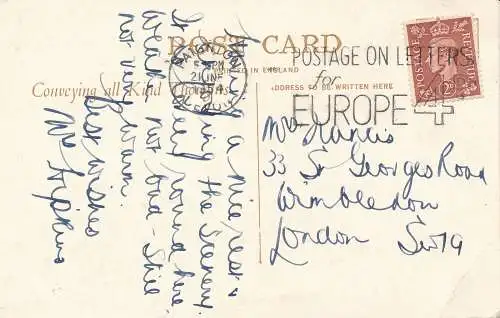 POST CARD
PRINTED IN ENGLAND
Conveying all Kind Thoughts.
ADDRESS TO BE WRITTEN HERE
POSTAGE ON LETTERS
for
EUROPE 4
POSTAGE REVENUE
2D
5 PM
21 JNE
a nice rest &
the scenery.
It is
round here
weather not bad - still
not very warm.
Best wishes
Mrs Francis
33 St Georges Road
Wimbledon
London SW19